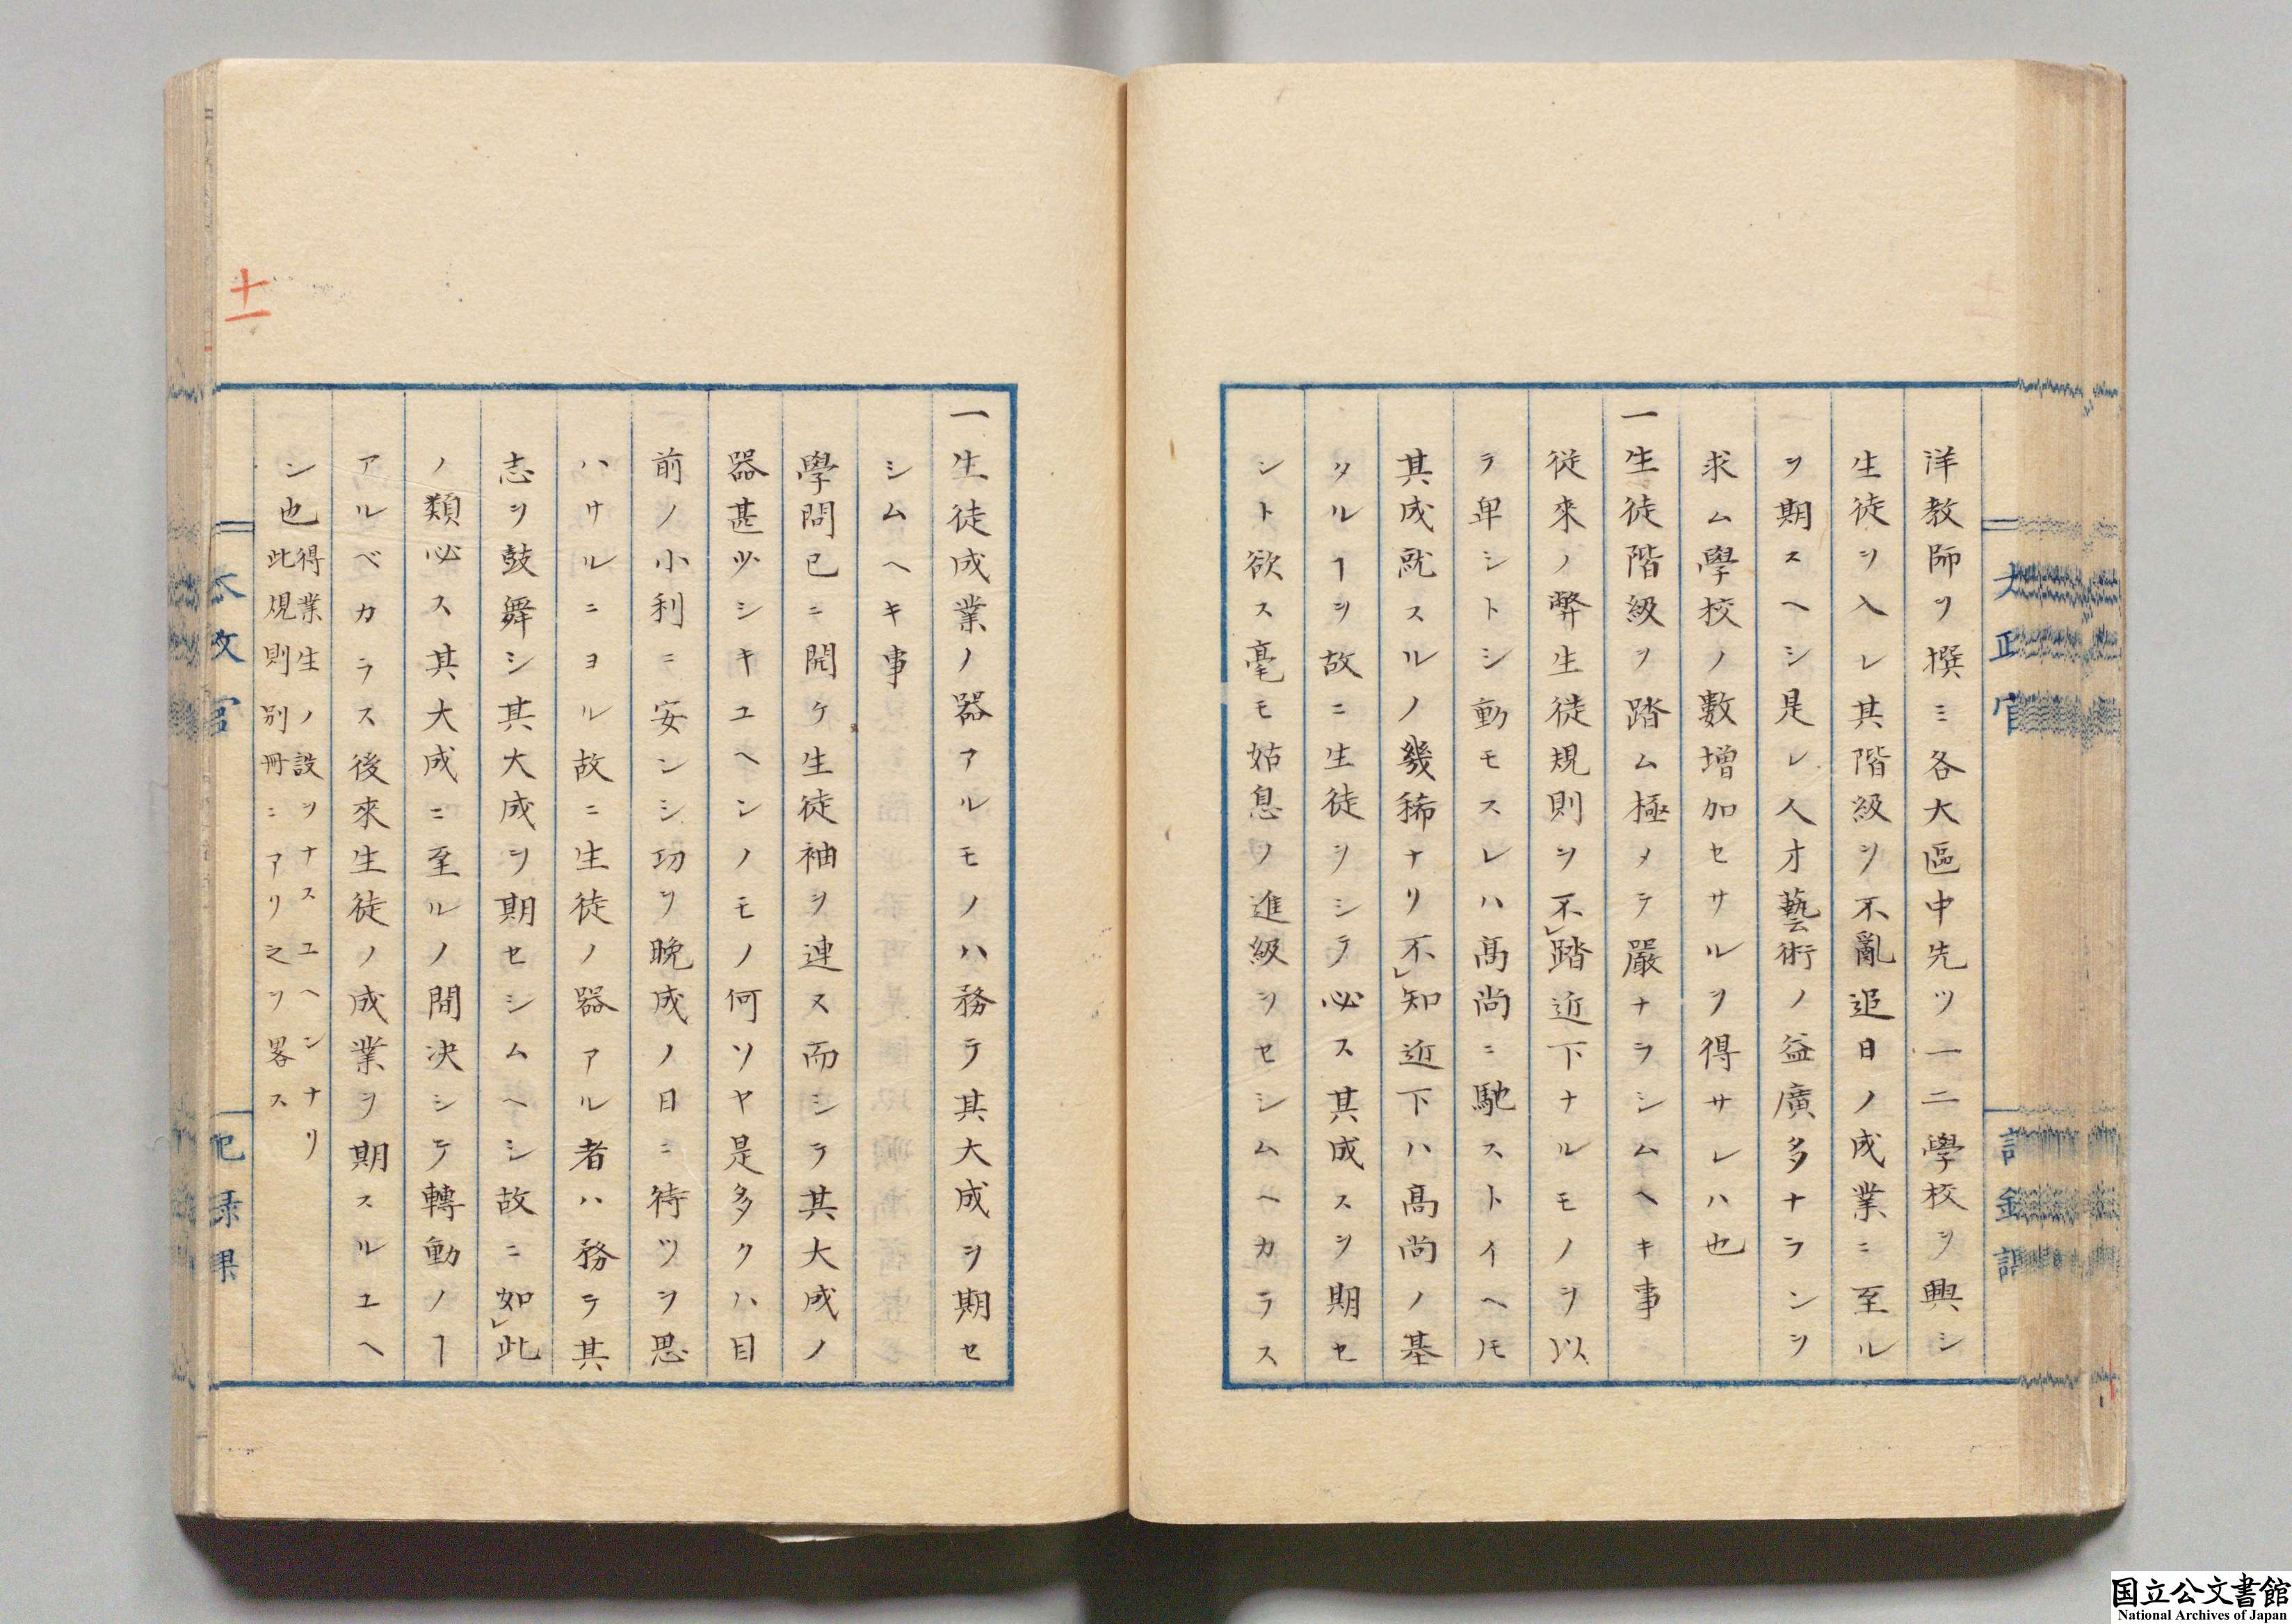 洋教師ヲ撰ミ各大區中先ツ一二學校ヲ興シ
生徒ヲ入レ其階級ヲ不亂追日ノ成業ニ至ル
ヲ期スヘシ是レ人才藝術ノ益廣多ナランヿヲ
求ム學校ノ數增加セサルヲ得サレハ也
一生徒階級ヲ踏ム極メテ嚴ナラシムヘキ事
從來ノ弊生徒規則ヲ不㆑踏近下ナルモノヲ以
テ卑シトシ動モスレハ髙尚ニ馳ストイヘㇳモ
其成就スルノ幾稀ナリ不㆑知近下ハ髙尚ノ基
タルヿヲ故ニ生徒ヲシテ必ス其成スヲ期セ
ント欲ス毫モ姑息ノ進級ヲセシムヘカラス
一生徒成業ノ器アルモノハ務テ其大成ヲ期セ
シムヘキ事
學問已ニ開ケ生徒袖ヲ連ヌ而シテ其大成ノ
器甚少シキユヘンノモノ何ソヤ是多クハ目
前ノ小利ニ安ンシ功ヲ晩成ノ日ニ待ツヲ思
ハサルニヨル故ニ生徒ノ器アル者ハ務テ其
志ヲ鼓舞シ其大成ヲ期セシムヘシ故ニ如㆑此
ノ類必ス其大成ニ至ルノ間决シテ轉動ノヿ
アルベカラス後來生徒ノ成業ヲ期スルユヘ
ン也
得業生ノ設ヲナスユヘンナリ
此規則別冊ニアリ之ヲ畧ス
十一
国立公文書館
National Archives of Japan